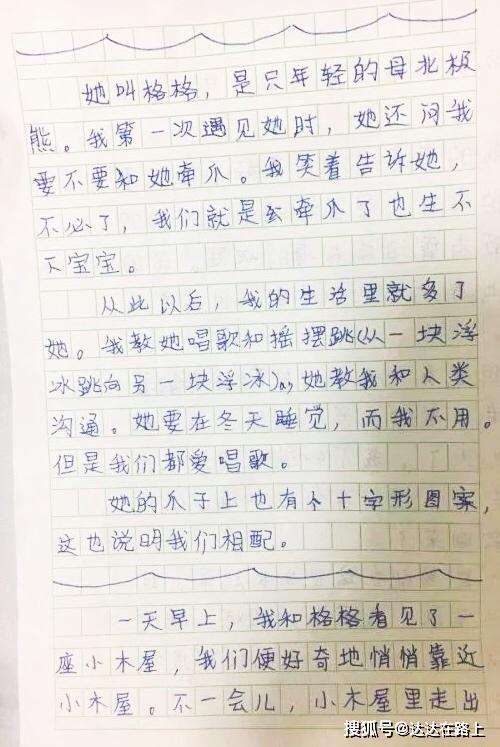 她叫格格，是只年轻的母北极
熊。我第一次遇见她时，她还问我
要不要和她牵爪。我笑着告诉她，
不必了，我们就是去牵爪了也生不
下宝宝。
从此以后，我的生活里就多了
她。我教她唱歌和摇摆跳(从一块浮
冰跳向另一块浮冰)，她教我和人类
沟通。她要在冬天睡觉，而我不用。
但是我们都爱唱歌。
她的爪子上也有个十字形图案，
这也说明我们相配。
一天早上，我和格格看见了一
座小木屋，我们便好奇地悄悄靠近
小木屋。不一会儿，小木屋里走出
搜狐号@达达在路上